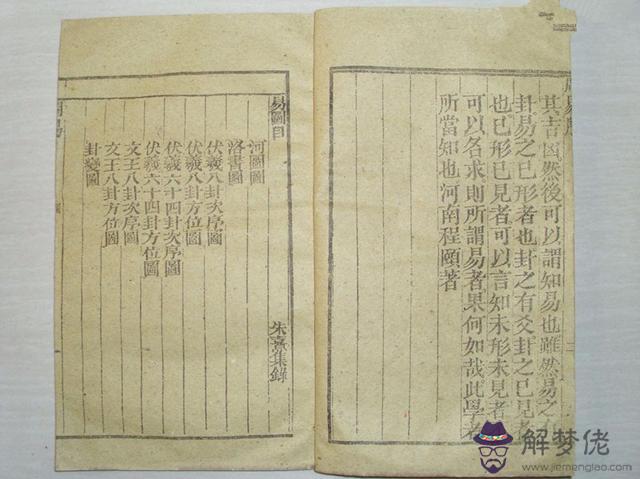 周易序
其吉凶然後可以謂知易也雖然易之有
卦易之已形者也卦之有爻卦之已見者
也已形已見者可以言知未形未見者不
可以名求則所謂易者果何如哉此學者
所當知也河南程頤著
易圖目
朱熹集錄
河圖圖
洛書圖
伏羲八卦次序圖
伏羲八卦方位圖
伏羲六十四卦次序圖
伏羲六十四卦方位圖
文王八卦次序圖
文王八卦方位圖
卦變圖
解梦佬
www.jiemenglao.com